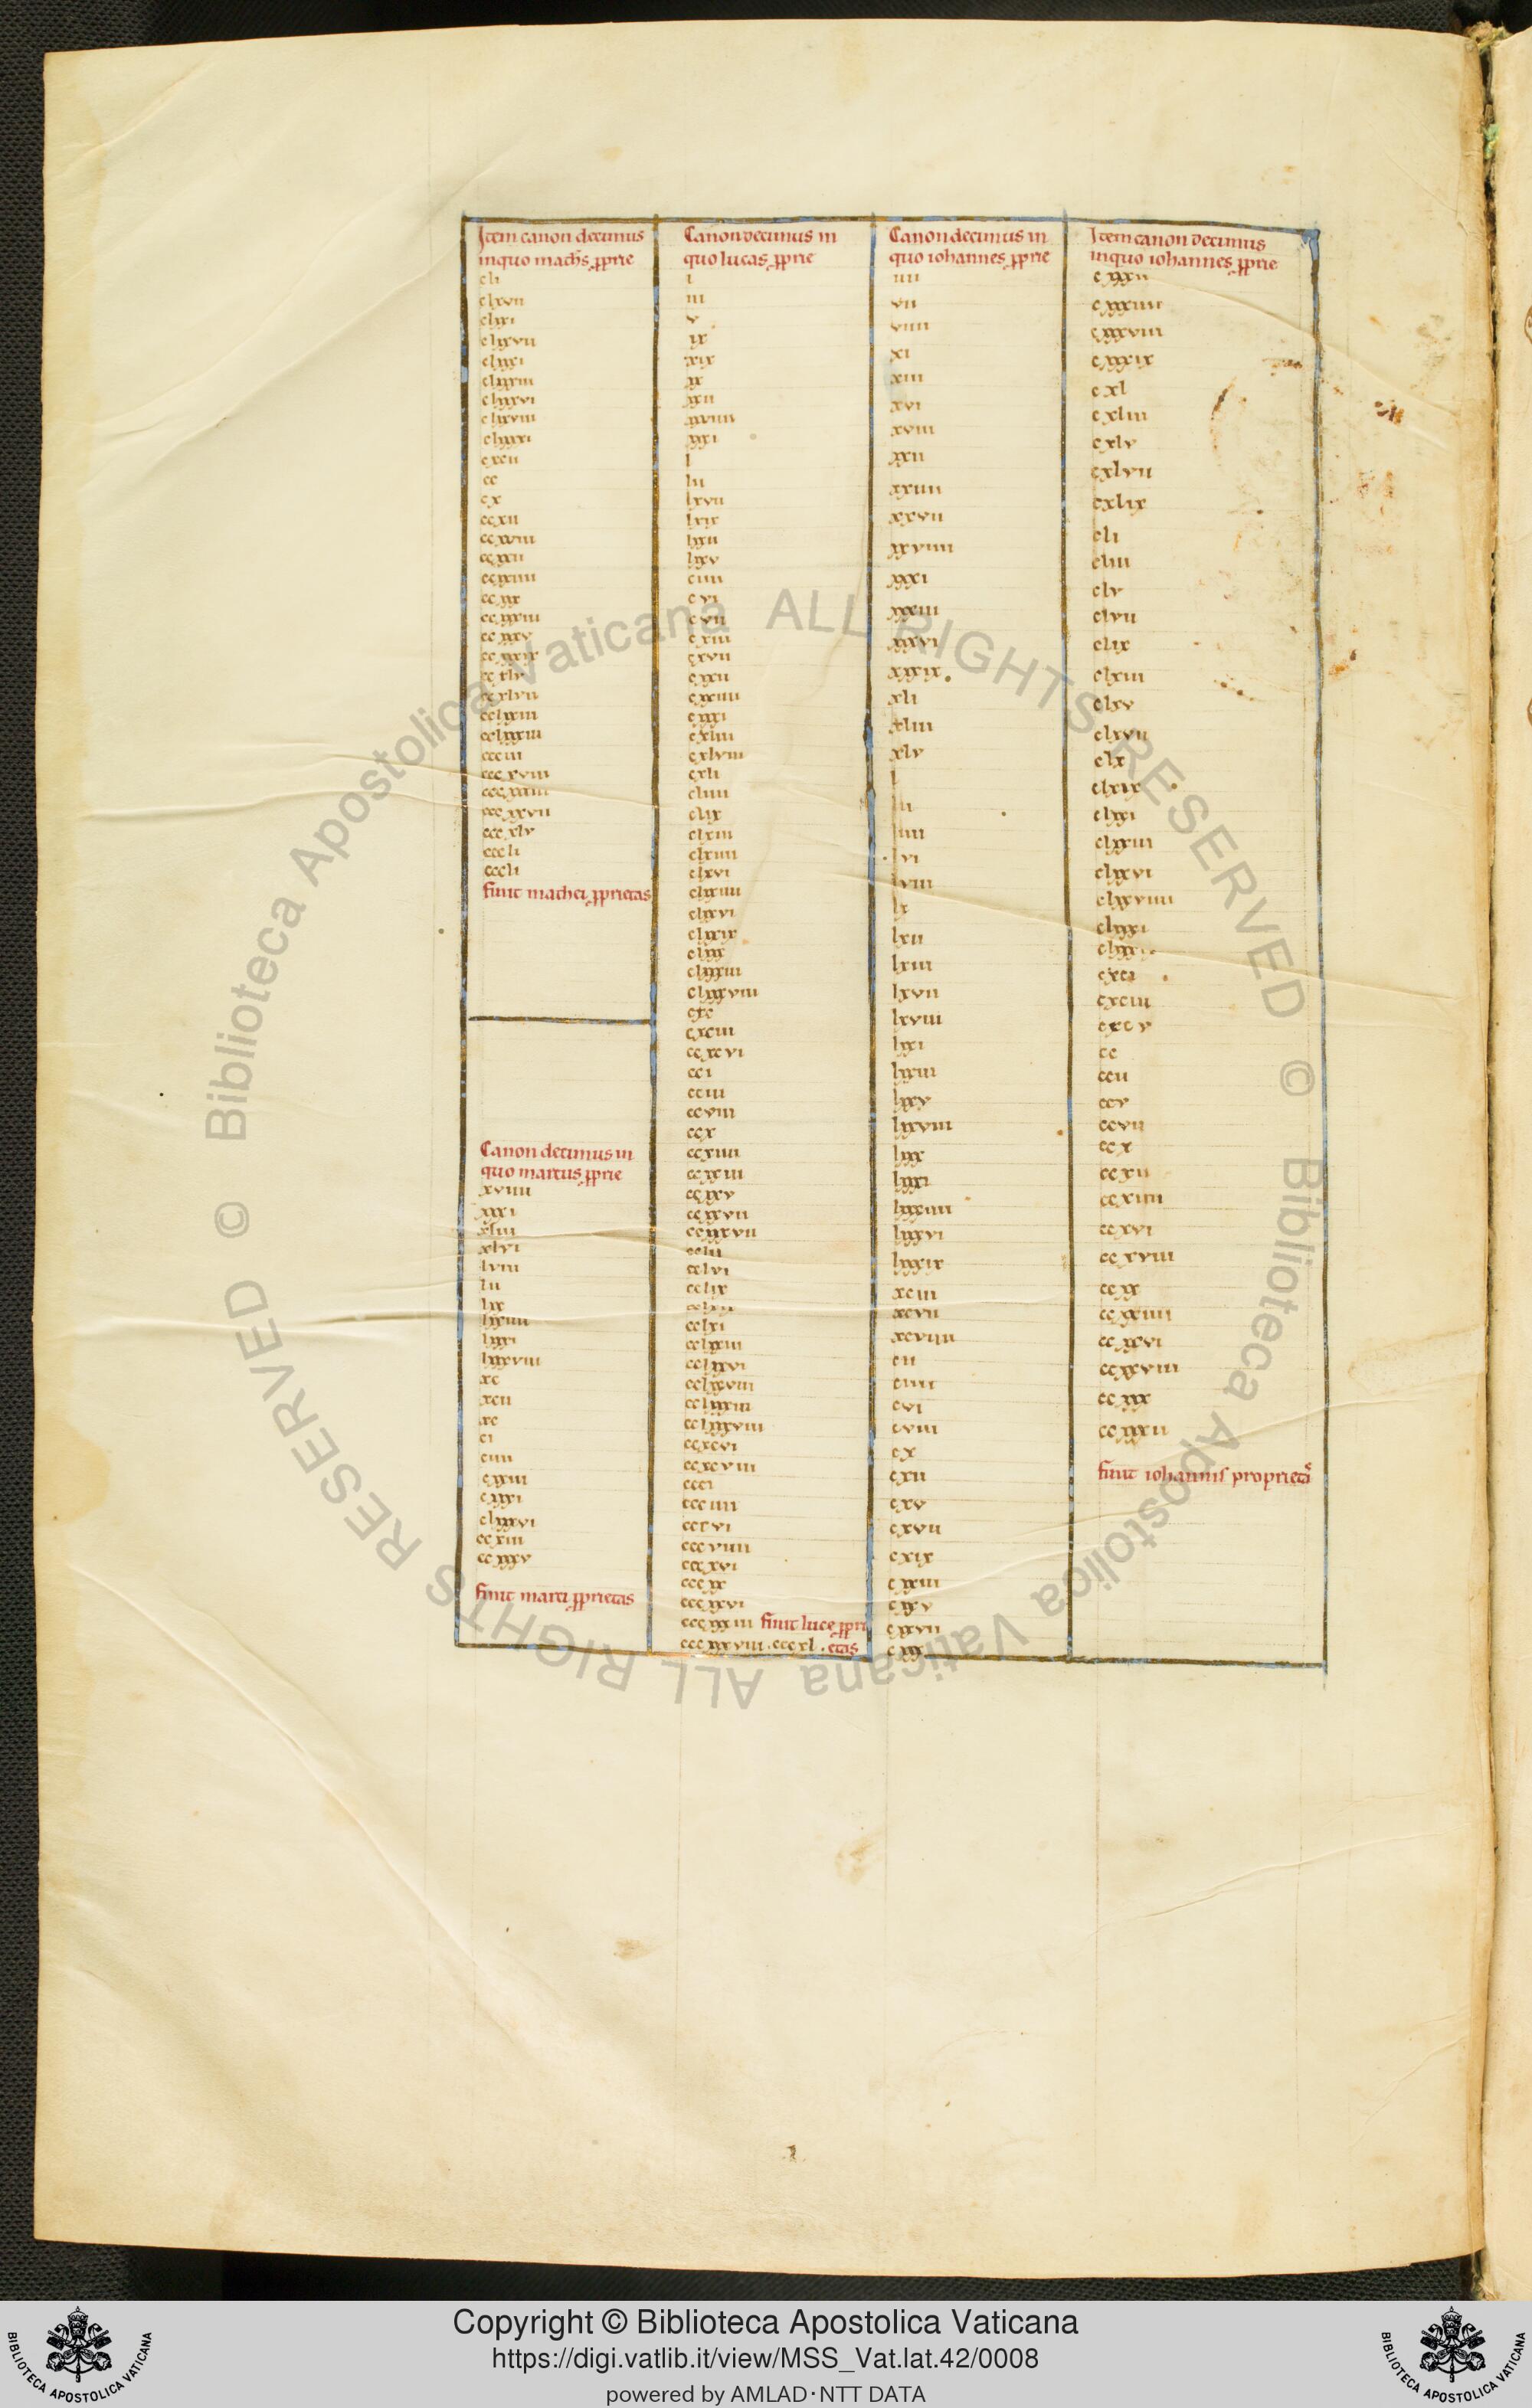 Item canon decimus
inquo math's pprie
cli
clxvii
clxxi
clxxvii
clxxxi
clxxxiii
clxxxvi
clxxxviii
clxxxxi
cxcii
cc
cx
ccxii
ccxviii
ccxxii
ccxxiiii
ccxxx
ccxxxiii
ccxxxv
ccxxxix
ccxlv
ccxlvii
cclxxiii
cclxxxiii
ccciii
cccxviii
cccxxiiii
cccxxxvii
cccxlv
cccli
cccli
finit mathei pprietas
Canon decimus in
quo marcus pprie
xviiii
xxxi
xliii
xlvi
lviii
lii
lxx
lxxiiii
lxxxi
lxxxviii
xc
xcii
xc
ci
ciiii
cxxiii
cxxxi
clxxxvi
ccxiii
ccxxxv
finit marci pprietas
Canon decimus in
quo lucas pprie
i
iii
v
ix
xix
xx
xxii
xxviiii
xxxi
l
lii
lxvii
lxix
lxxii
lxxv
ciiii
cvi
cvii
cxiii
cxvii
cxxii
cxxiiii
cxxxi
cxliii
cxlviii
cxli
cliiii
clix
clxiii
clxiiii
clxvi
clxxiiii
clxxvi
clxxix
clxxx
clxxxiii
clxxxviii
cxc
cxciii
ccxcvi
cci
cciii
ccviii
ccx
ccxiiii
ccxxiii
ccxxv
ccxxvii
ccxxxvii
cclii
cclvi
cclix
cclxi
cclxxiii
cclxxvi
cclxxviii
cclxxxiii
cclxxxviii
ccxcvi
ccxcviii
ccci
ccciiii
cccvi
cccviiii
cccxvi
cccxx
cccxxvi
cccxxxiii finit luce ppri
cccxxxviii . cccxl . etas
Canon decimus in
quo iohannes pprie
iiii
vii
viiii
xi
xiii
xvi
xviii
xxii
xxiiii
xxvii
xxviiii
xxxi
xxxiii
xxxvi
xxxix
xli
xliii
xlv
l
lii
liiii
lvi
lviii
lx
lxii
lxiii
lxvii
lxviii
lxxi
lxxiii
lxxv
lxxviii
lxxx
lxxxi
lxxxiiii
lxxxvi
lxxxix
xciii
xcvii
xcviiii
cii
ciiii
cvi
cviii
cx
cxii
cxv
cxvii
cxix
cxxiii
cxxv
cxxvii
cxxx
Item canon decimus
inquo iohannes pprie
cxxxii
cxxxiiii
cxxxviii
cxxxix
cxl
cxliii
cxlv
cxlvii
cxlix
cli
cliii
clv
clvii
clix
clxiii
clxv
clxvii
clx
clxix
clxxi
clxxiii
clxxvi
clxxviiii
clxxxi
cxci
cxciii
cxcv
cc
ccii
ccv
ccvii
ccx
ccxii
ccxiiii
ccxvi
ccxviii
ccxx
ccxxiiii
ccxxvi
ccxxviii
ccxxx
ccxxxii
finit iohannis proprietas
Copyright © Biblioteca Apostolica Vaticana
https://digi.vatlib.it/view/MSS_Vat.lat.42/0008
powered by AMLAD·NTT DATA